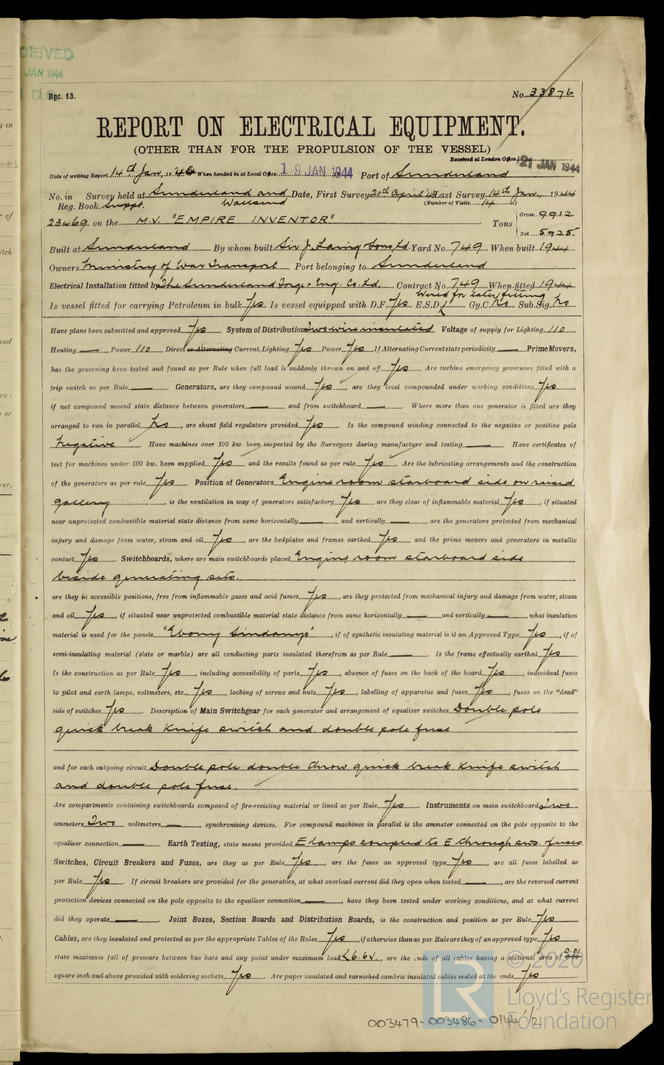 CEIVED
JAN 1944
Rpt. 13.
No. 33876
REPORT ON ELECTRICAL EQUIPMENT.
(OTHER THAN FOR THE PROPULSION OF THE VESSEL)
Received at London Office 21 JAN 1944
Date of writing Report 14th Jan, 19 When handed in at Local Office 19 JAN 1944 Port of Sunderland
No. in Survey held at Sunderland and Wallsend Date, First Survey 20th April '43 Last Survey 14th Jan., 1944
Reg. Book. Suppt. (Number of Visits 14)
23469 on the M.V. "EMPIRE INVENTOR" Tons { Gross 9912 Net 5925
Built at Sunderland By whom built Sir J. Laing & Sons, Ld. Yard No. 749 When built 1944
Owners Ministry of War Transport Port belonging to Sunderland
Electrical Installation fitted by The Sunderland Forge & Eng. Co. Ld. Contract No. 749 When fitted 1944
Is vessel fitted for carrying Petroleum in bulk Yes Is vessel equipped with D.F. Yes E.S.D. Wired for later fitting Gy.C. No Sub.Sig. No
Have plans been submitted and approved Yes System of Distribution Two wire insulated Voltage of supply for Lighting 110
Heating — Power 110 Direct or Alternating Current, Lighting Yes Power Yes If Alternating Current state periodicity — Prime Movers,
has the governing been tested and found as per Rule when full load is suddenly thrown on and off Yes Are turbine emergency governors fitted with a
trip switch as per Rule — Generators, are they compound wound Yes, are they level compounded under working conditions Yes,
if not compound wound state distance between generators — and from switchboard — Where more than one generator is fitted are they
arranged to run in parallel No, are shunt field regulators provided Yes Is the compound winding connected to the negative or positive pole
Negative Have machines over 100 kw. been inspected by the Surveyors during manufacture and testing — Have certificates of
test for machines under 100 kw. been supplied Yes and the results found as per rule Yes Are the lubricating arrangements and the construction
of the generators as per rule Yes Position of Generators Engine room starboard side on raised
gallery, is the ventilation in way of generators satisfactory Yes, are they clear of inflammable material Yes, if situated
near unprotected combustible material state distance from same horizontally — and vertically —, are the generators protected from mechanical
injury and damage from water, steam and oil Yes, are the bedplates and frames earthed Yes and the prime movers and generators in metallic
contact Yes Switchboards, where are main switchboards placed Engine room starboard side
beside generating sets.
are they in accessible positions, free from inflammable gases and acid fumes Yes, are they protected from mechanical injury and damage from water, steam
and oil Yes, if situated near unprotected combustible material state distance from same horizontally — and vertically —, what insulation
material is used for the panels "Ebony Sindanyo", if of synthetic insulating material is it an Approved Type Yes, if of
semi-insulating material (slate or marble) are all conducting parts insulated therefrom as per Rule — Is the frame effectually earthed Yes
Is the construction as per Rule Yes, including accessibility of parts Yes, absence of fuses on the back of the board Yes, individual fuses
to pilot and earth lamps, voltmeters, etc., Yes locking of screws and nuts Yes, labelling of apparatus and fuses Yes, fuses on the "dead"
side of switches Yes Description of Main Switchgear for each generator and arrangement of equaliser switches Double pole
quick break knife switch and double pole fuse
and for each outgoing circuit Double pole double throw quick break knife switch
and double pole fuse.
Are compartments containing switchboards composed of fire-resisting material or lined as per Rule Yes Instruments on main switchboard Two
ammeters Two voltmeters — synchronising devices. For compound machines in parallel is the ammeter connected on the pole opposite to the
equaliser connection — Earth Testing, state means provided E lamps coupled to E through sws. & fuses
Switches, Circuit Breakers and Fuses, are they as per Rule Yes, are the fuses an approved type Yes, are all fuses labelled as
per Rule Yes If circuit breakers are provided for the generators, at what overload current did they open when tested —, are the reversed current
protection devices connected on the pole opposite to the equaliser connection —, have they been tested under working conditions, and at what current
did they operate — Joint Boxes, Section Boards and Distribution Boards, is the construction and position as per Rule Yes
Cables, are they insulated and protected as per the appropriate Tables of the Rules Yes if otherwise than as per Rule are they of an approved type Yes
state maximum fall of pressure between bus bars and any point under maximum load <6.6V, are the ends of all cables having a sectional area of 0.01
square inch and above provided with soldering sockets Yes Are paper insulated and varnished cambric insulated cables sealed at the ends Yes
© 2020
LR
Lloyd's Register
Foundation
003479-003486-0144 1/2